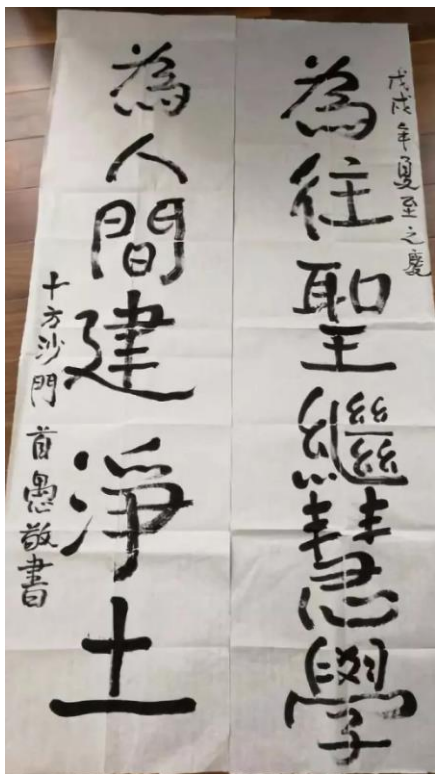 戊戌年夏至之慶
為往聖繼慧學
為人間建淨土
十方沙門首愚敬書